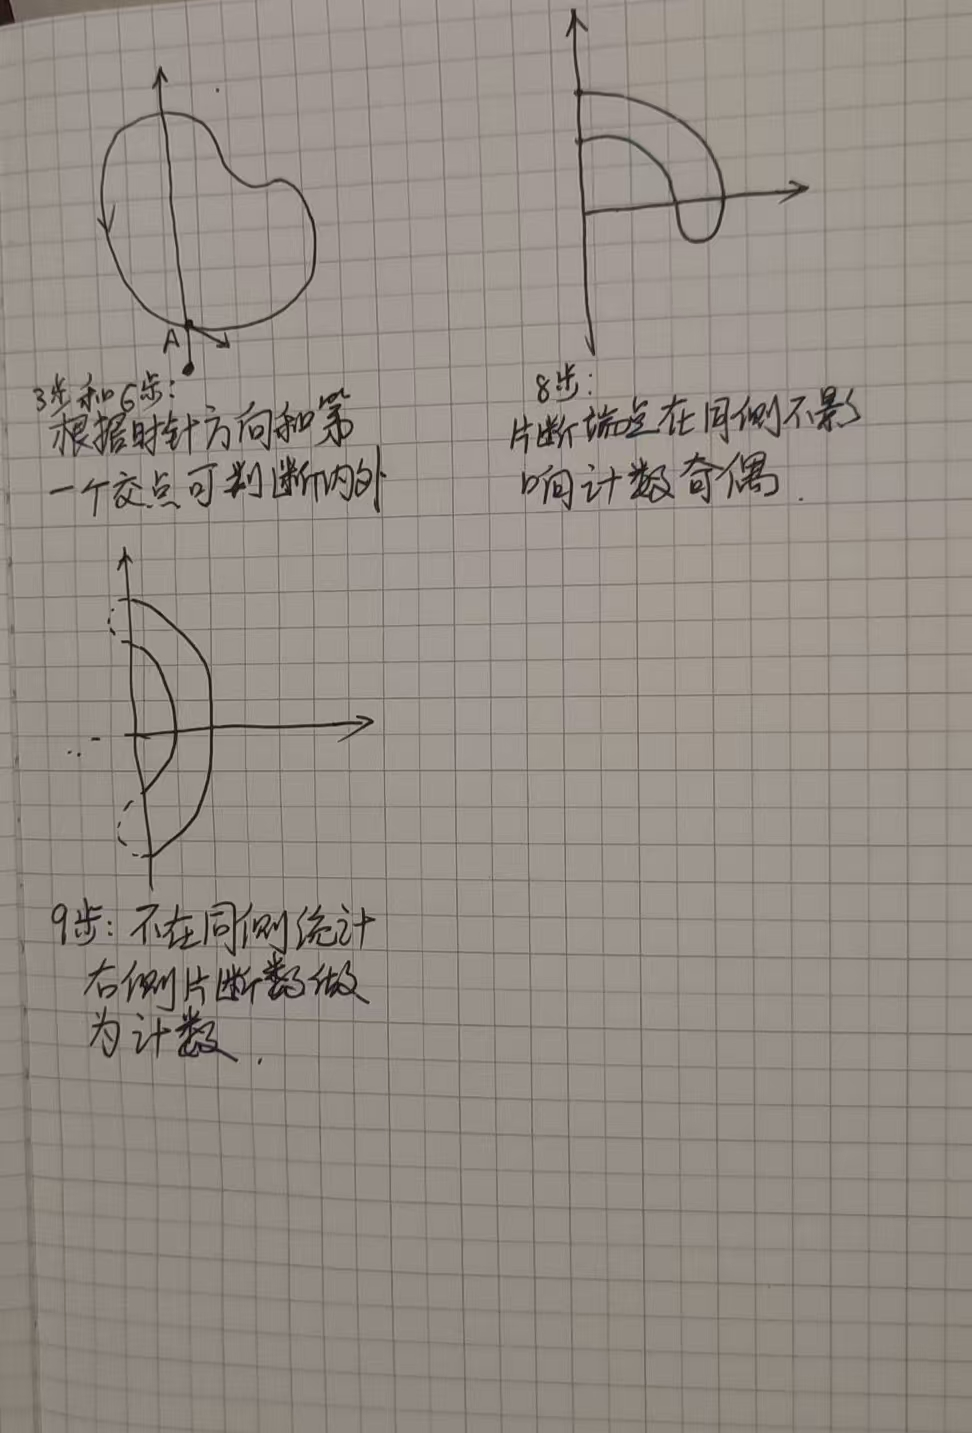 A
3步和6步:
根据时针方向和第
一个交点可判断内外
8步:
片断端点在同侧不影
响计数奇偶.
9步: 不在同侧统计
右侧片断数做
为计数.